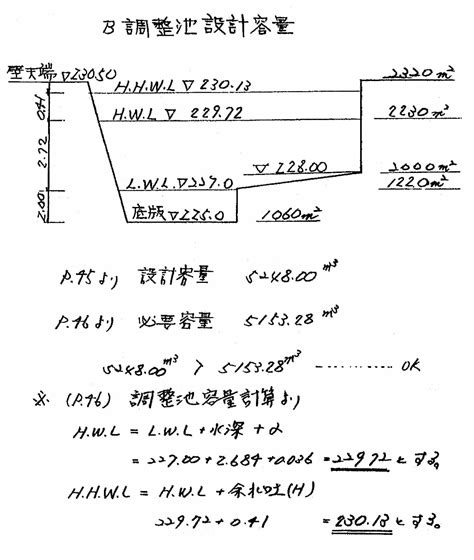 B 調整池設計容量
壁天端 ▽230.50
2320m²
H.H.W.L ▽ 230.13
0.41
H.W.L ▽ 229.72
2230m²
2.72
▽ 228.00
2000m²
L.W.L ▽227.0
1220m²
2.00
底版 ▽225.0
1060m²
P.45より 設計容量 5248.00m³
P.46より 必要容量 5153.28m³
5248.00m³ > 5153.28m³ ………… OK
※ (P.46) 調整池容量計算より
H.W.L = L.W.L + 水深 + α
= 227.00 + 2.684 + 0.036 = 229.72とする。
H.H.W.L = H.W.L + 余水吐(H)
229.72 + 0.41 = 230.13とする。